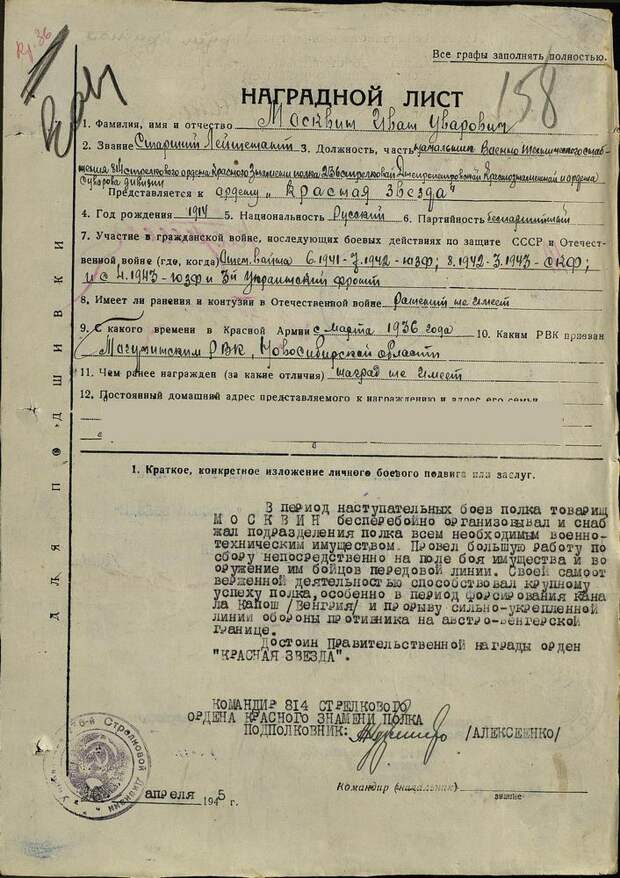 Кр. 36
Все графы заполнять полностью.
158
НАГРАДНОЙ ЛИСТ
1. Фамилия, имя и отчество Москвин Иван Уварович
2. Звание Старший Лейтенант 3. Должность, часть начальник Военно технического снаб-
жения 814 стрелкового ордена Красного Знамени полка 236 стрелковой Днепропетровской Краснознаменной и ордена
Суворова дивизии
Представляется к ордену „Красная Звезда"
4. Год рождения 1914 5. Национальность Русский 6. Партийность беспартийный
7. Участие в гражданской войне, последующих боевых действиях по защите СССР и Отечест-
венной войне (где, когда) Отеч. война 6.1941-7.1942-юзф; 8.1942-3.1943-СКФ;
и с 4.1943-юзф и 3й Украинский фронт
8. Имеет ли ранения и контузии в Отечественной войне Ранений не имеет
9. С какого времени в Красной Армии с марта 1936 года 10. Каким РВК призван
РВК, Новосибирской области
11. Чем ранее награжден (за какие отличия) наград не имеет
12. Постоянный домашний адрес представляемого к награждению и адрес его семьи
ДЛЯ ПОДШИВКИ
1. Краткое, конкретное изложение личного боевого подвига или заслуг.
В период наступательных боев полка товарищ
МОСКВИН бесперебойно организовывал и снаб
жал подразделения полка всем необходимым военно-
техническим имуществом. Провел большую работу по
сбору непосредственно на поле боя имущества и во
оружение им бойцов передовой линии. Своей самоот
верженной деятельностью способствовал крупному
успеху полка, особенно в период форсирования кана
ла Капош /Венгрия/ и прорыву сильно-укрепленной
линии обороны противника на австро-венгерской
границе.
Достоин Правительственной награды орден
"КРАСНАЯ ЗВЕЗДА".
КОМАНДИР 814 СТРЕЛКОВОГО
ОРДЕНА КРАСНОГО ЗНАМЕНИ ПОЛКА
ПОДПОЛКОВНИК: /АЛЕКСЕЕНКО/
6-й Стрелковой Дивизии
апреля 1945 г.
Командир (начальник)
звание